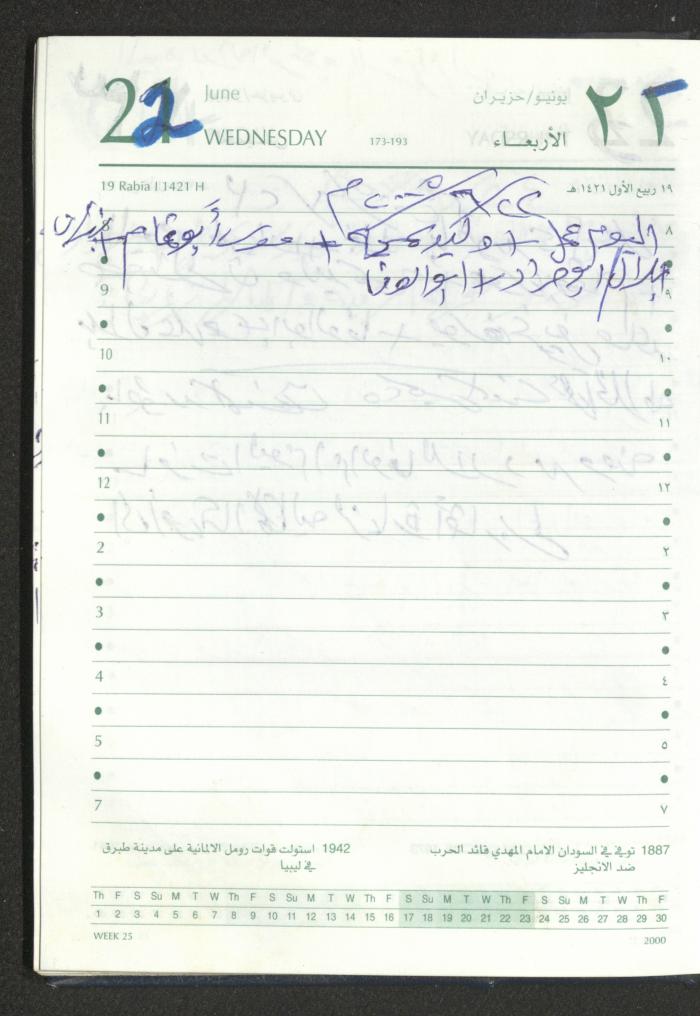 22 June يونيو/حزيران ٢٢
WEDNESDAY 173-193 الأربعاء
19 Rabia I 1421 H ١٩ ربيع الأول ١٤٢١ هـ
8 اليوم عمل + وليد + + ٨
بلال ابو جراد + ابو الوفا
9 ٩
10 ١٠
11 ١١
12 ١٢
2 ٢
3 ٣
4 ٤
5 ٥
7 ٧
1887 توفي في السودان الامام المهدي قائد الحرب
ضد الانجليز
1942 استولت قوات رومل الالمانية على مدينة طبرق
في ليبيا
Th F S Su M T W Th F S Su M T W Th F S Su M T W Th F S Su M T W Th F
1 2 3 4 5 6 7 8 9 10 11 12 13 14 15 16 17 18 19 20 21 22 23 24 25 26 27 28 29 30
WEEK 25 2000